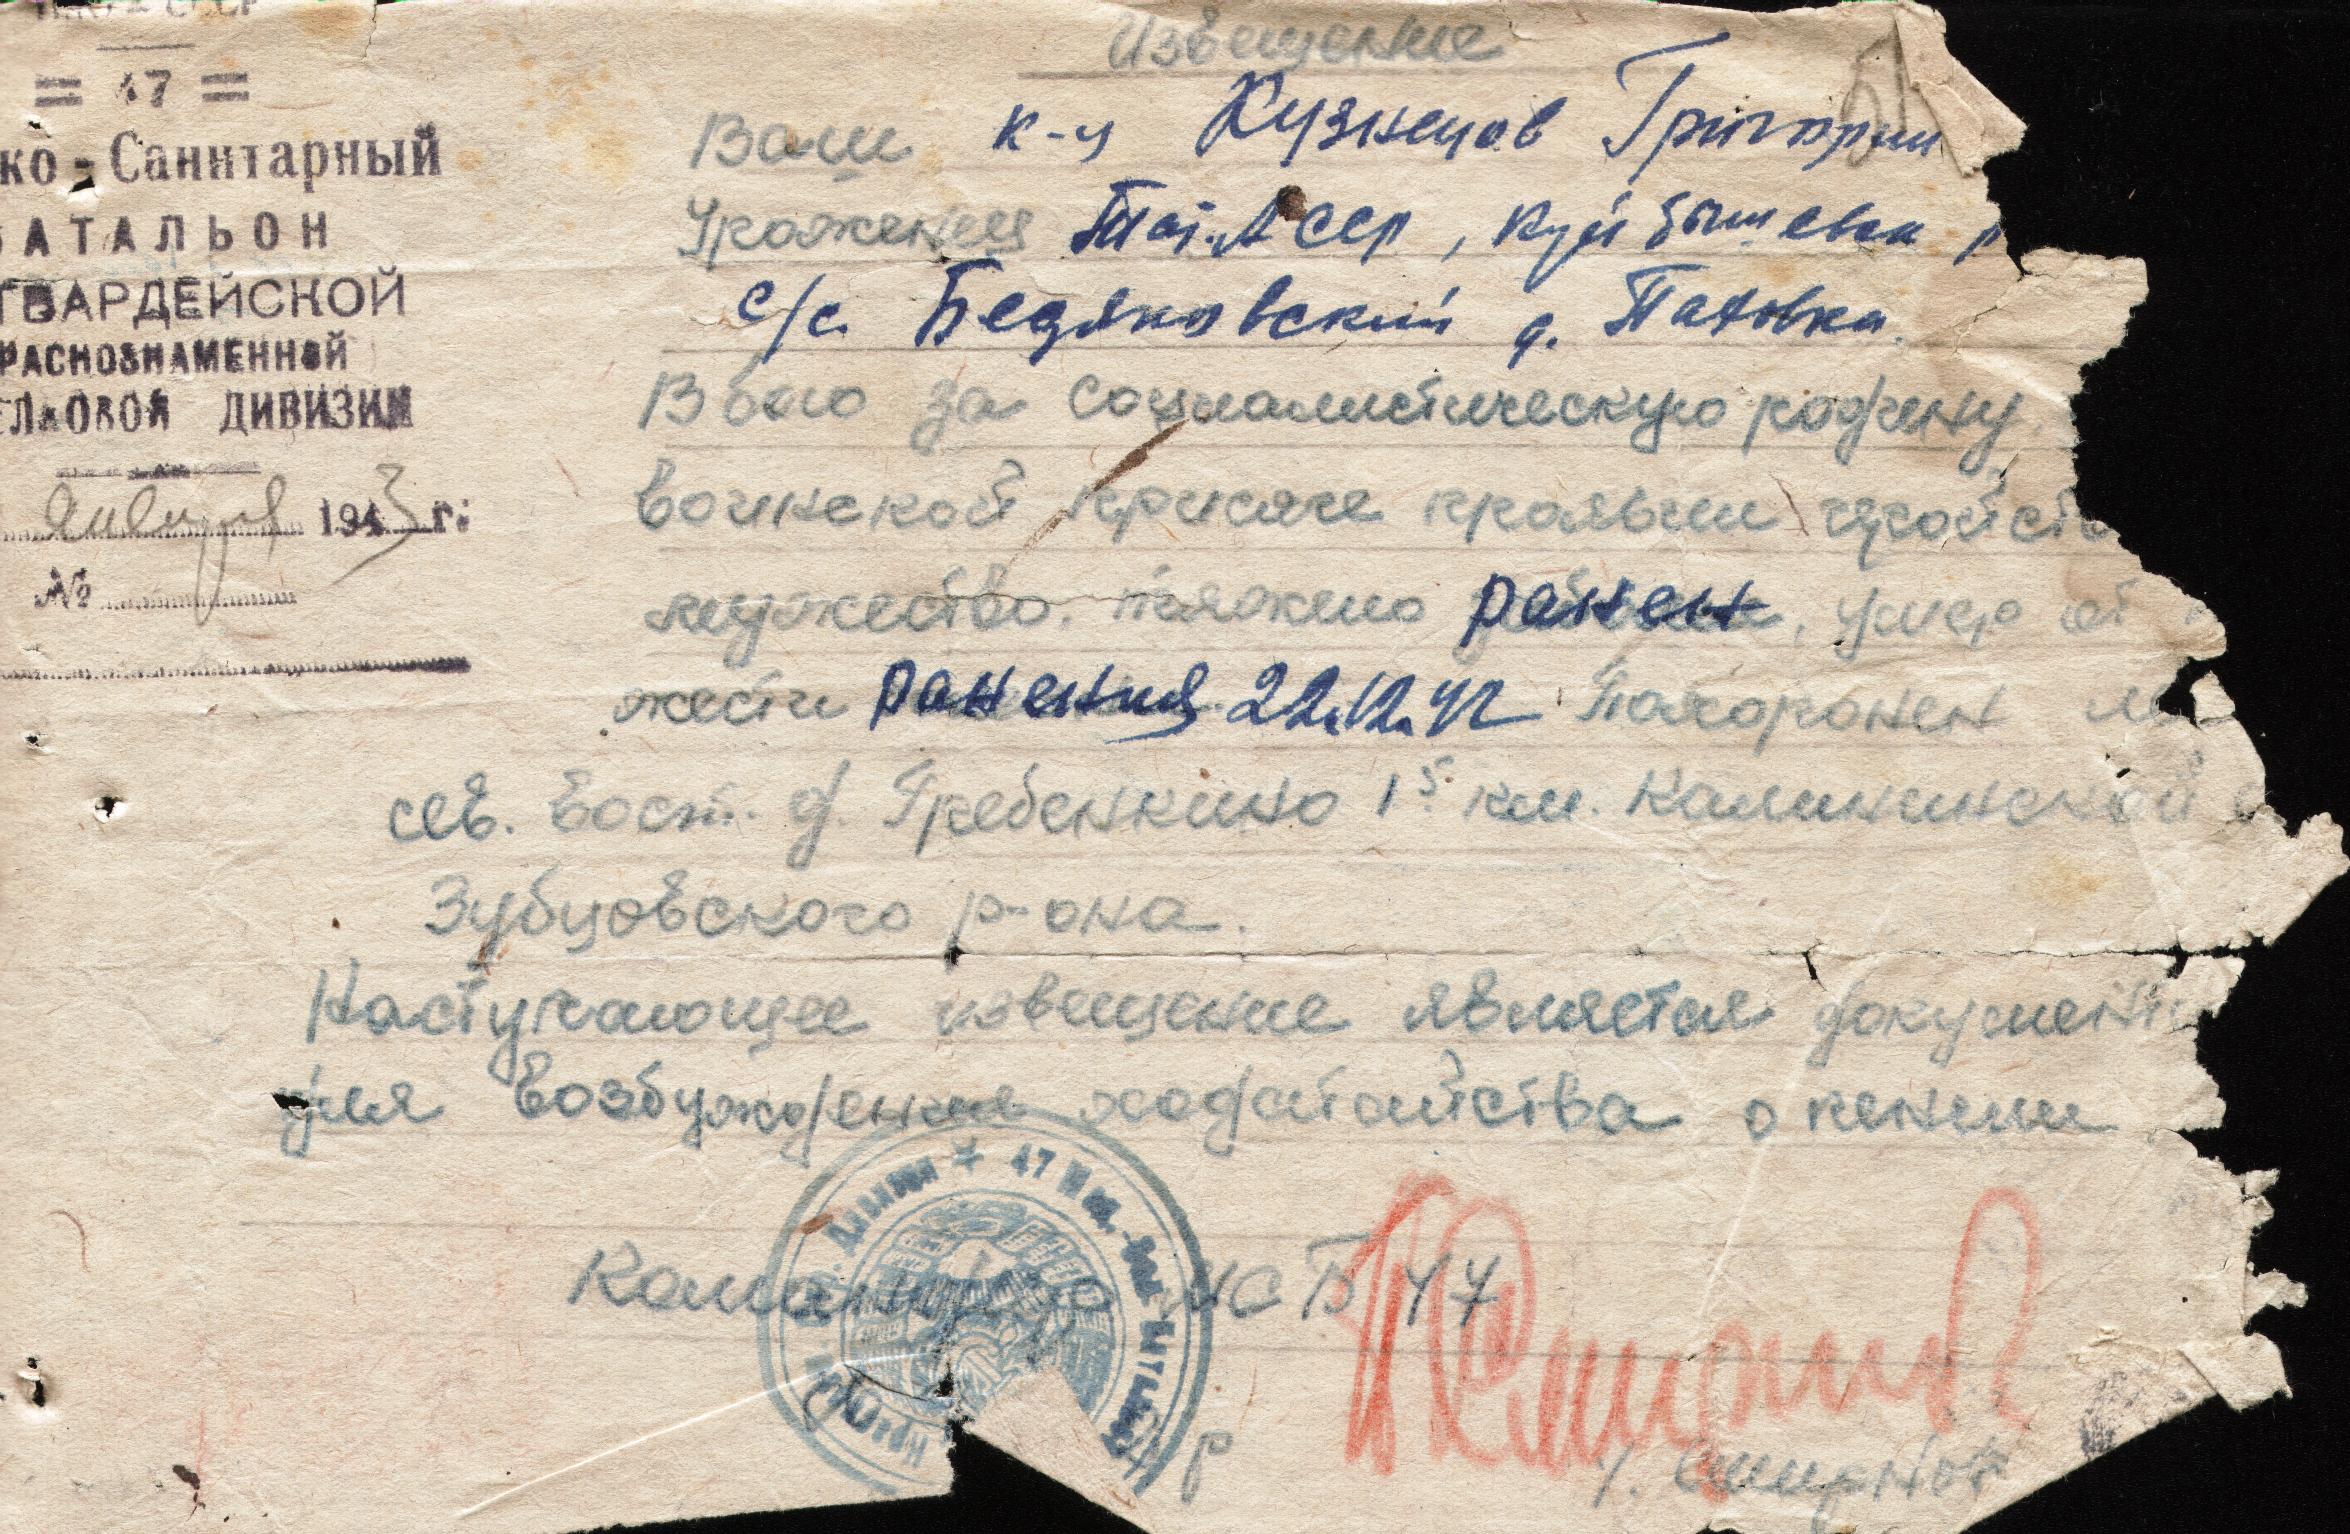 Извещение
= 47 =
ко-Санитарный
БАТАЛЬОН
ГВАРДЕЙСКОЙ
РАСНОЗНАМЕННОЙ
ЕЛКОВОЙ ДИВИЗИИ
января 1943 г.
№
51
Ваш к-ц Кузнецов Григорий
Уроженец Тат.АССР, Куйбышевск р
с/с. Бездяковский д. Паховка.
В бою за социалистическую родину.
воинской присяге проявил геройств
мужество. тяжело ранен, умер от
жести ранения 22.12.42 Похоронен
сев. вост. д. Гребенкино 1 5 км. Калининской о
Зубцовского р-она.
Настучающее извещение является документ
для возбуждения ходатайства о пенсии
Командир МСБ 47
47 Мед.-Сан Бат
Дивизии
Смирнов